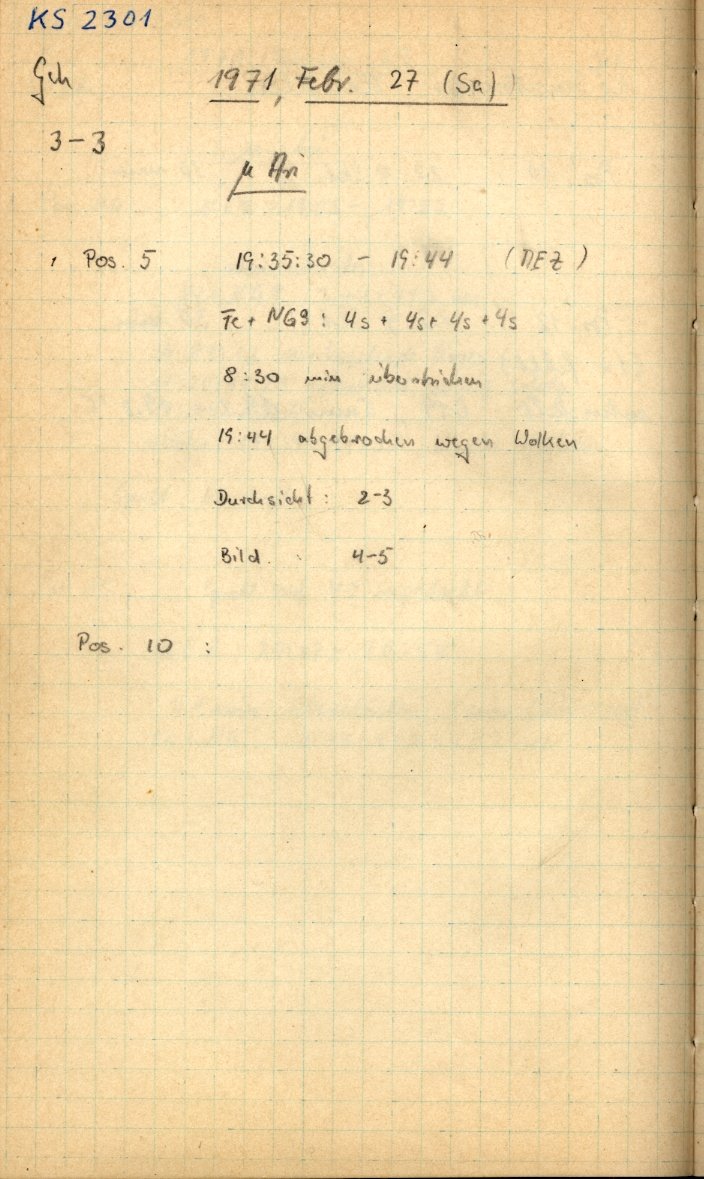 KS 2301
Geh 1971, Febr. 27 (Sa)
3-3
μ Ari
Pos. 5 19:35:30 - 19:44 (MEZ)
Fe + NG9 : 4s + 4s + 4s + 4s
8:30 min überstrichen
19:44 abgebrochen wegen Wolken
Durchsicht : 2-3
Bild : 4-5
Pos. 10 :